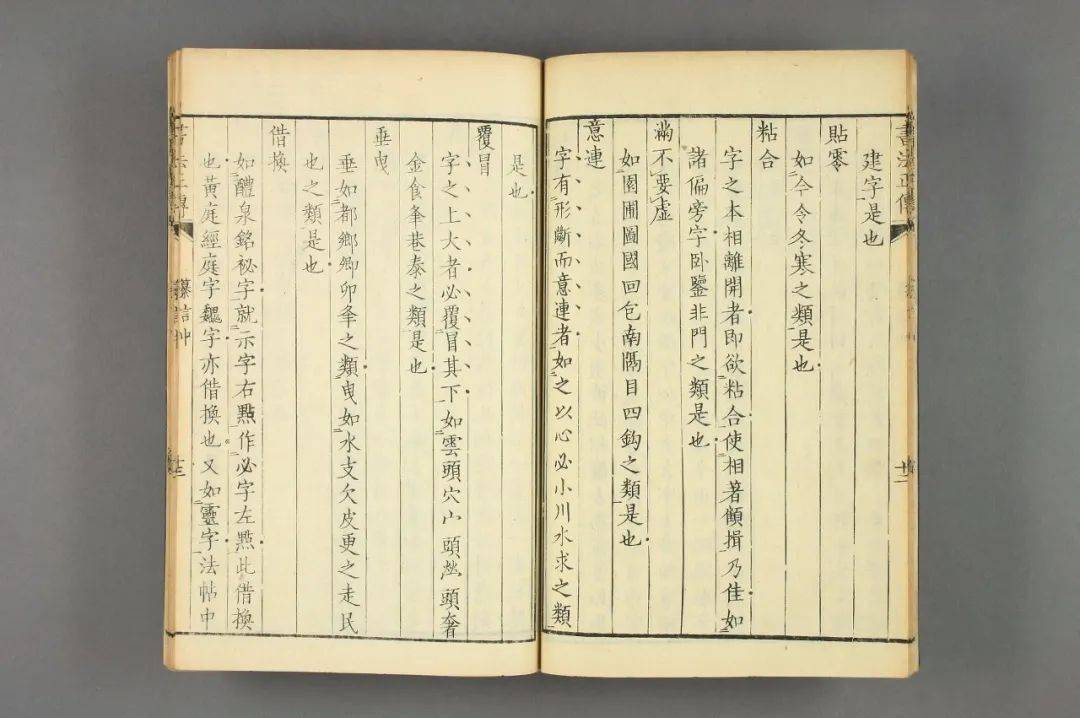 書法正傳
廿二
建字是也
貼零
如今令冬寒之類是也
粘合
字之本相離開者即欲粘合使相著顧揖乃佳如
諸偏旁字卧鑒非門之類是也
滿不要虛
如園圃圖國回包南隔目四鈎之類是也
意連
字有形斷而意連者如之以心必小川水求之類
是也
覆冒
字之上大者必覆冒其下如雲頭穴宀頭奢
金食夆巷泰之類是也
垂曳
垂如都鄉卿卯夆之類曳如水支欠皮更之走民
也之類是也
借換
如醴泉銘祕字就示字右點作必字左點此借換
也黃庭經庭字䰟字亦借換也又如靈字法帖中
書法正傳
纂言 卄